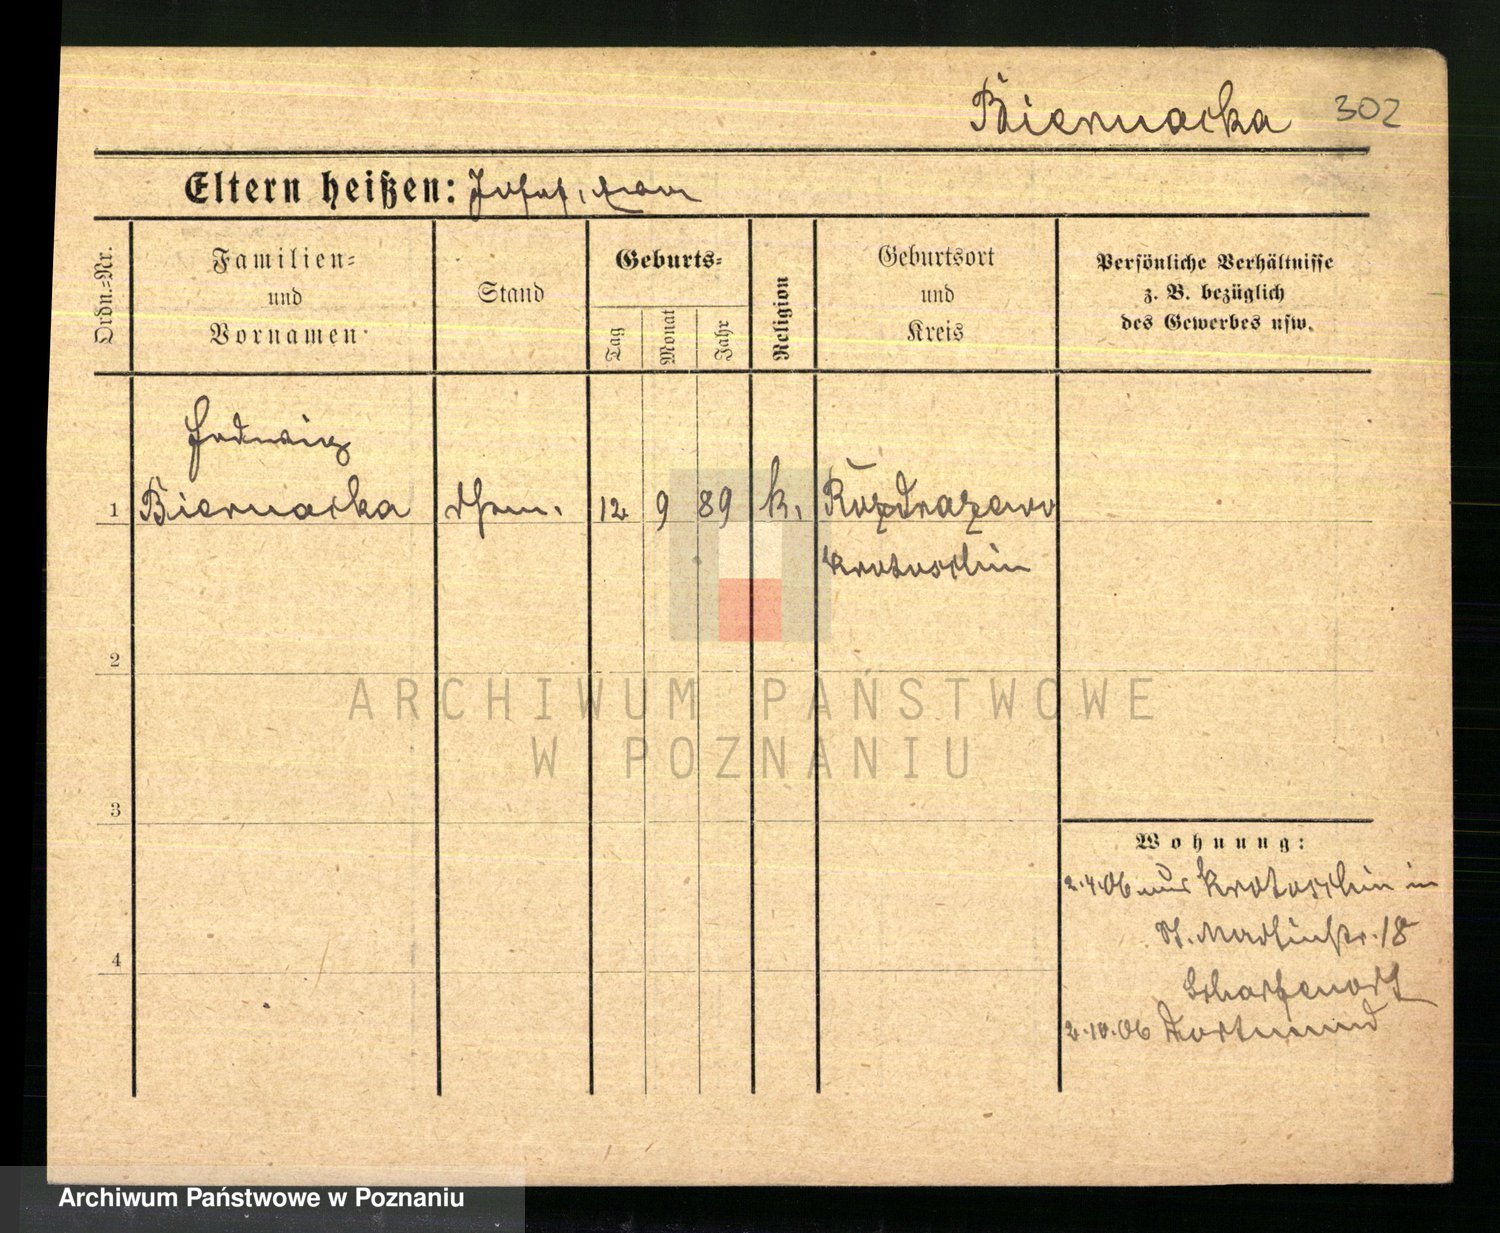 Biernacka 302
Eltern heißen: Josef,
Ordn.-Nr.
Familien-
und
Vornamen
Stand
Geburts-
Tag
Monat
Jahr
Religion
Geburtsort
und
Kreis
Persönliche Verhältnisse
z. B. bezüglich
des Gewerbes usw.
Hedwig
1 Biernacka 12 9 89 k. Rozdrazewo
Krotoschin
2
ARCHIWUM PAŃSTWOWE
W POZNANIU
3
Wohnung:
2.4.06 aus Krotoschin in
St. Martinstr. 18
Scharfenort
2.10.06 Dortmund
4
Archiwum Państwowe w Poznaniu